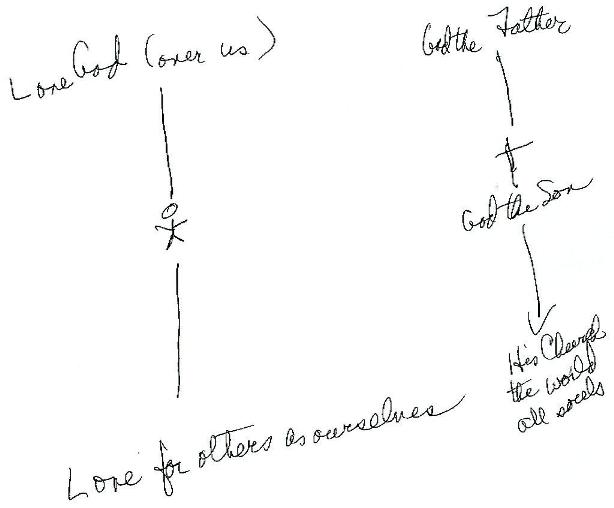 Love God (over us)
God the Father
God the Son
His Church
the world
all souls
Love for others as ourselves